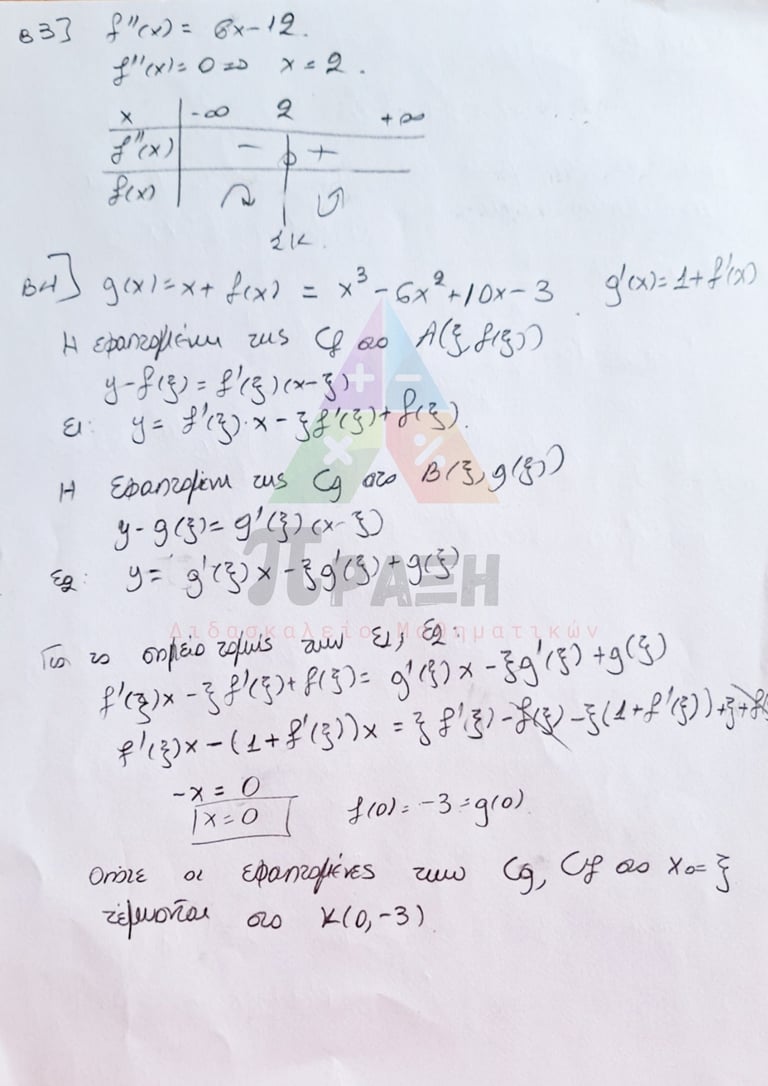 Β3] f''(x) = 6x-12.
f''(x)=0 => x = 2.
x -∞ 2 +∞
f''(x) - +
f(x)
Σ.Κ.
Β4] g(x)=x+f(x) = x³-6x²+10x-3 g'(x)=1+f'(x)
Η εφαπτομένη της Cf στο A(ξ, f(ξ))
y-f(ξ)=f'(ξ)(x-ξ)
ε1: y= f'(ξ)·x-ξf'(ξ)+f(ξ).
Η εφαπτομένη της Cg στο B(ξ, g(ξ))
y-g(ξ)=g'(ξ)(x-ξ)
ε2: y= g'(ξ)x-ξg'(ξ)+g(ξ)
πΡΑΞΗ
Διδασκαλείο Μαθηματικών
Για το σημείο τομής των ε1, ε2:
f'(ξ)x-ξf'(ξ)+f(ξ)= g'(ξ)x-ξg'(ξ)+g(ξ)
f'(ξ)x-(1+f'(ξ))x = ξf'(ξ)-f(ξ)-ξ(1+f'(ξ))+ξ+f(
-x = 0
x=0 f(0)=-3=g(0)
Οπότε οι εφαπτομένες των Cg, Cf στο x₀=ξ
τέμνονται στο K(0,-3)